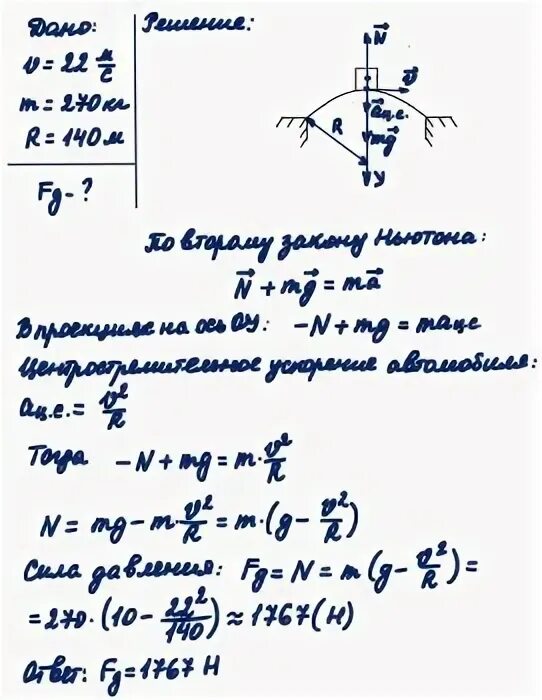 Дано:
υ = 22 м/с
m = 270 кг
R = 140 м
Fд - ?
Решение:
N⃗
υ⃗
a⃗ц.с.
R
mg⃗
У
По второму закону Ньютона:
N⃗ + mg⃗ = ma⃗
В проекциях на ось ОУ: -N + mg = maцс
Центростремительное ускорение автомобиля:
aц.с. = υ²/R
Тогда -N + mg = m·υ²/R
N = mg - m·υ²/R = m·(g - υ²/R)
Сила давления: Fд = N = m(g - υ²/R) =
= 270·(10 - 22²/140) ≈ 1767 (Н)
Ответ: Fд = 1767 Н